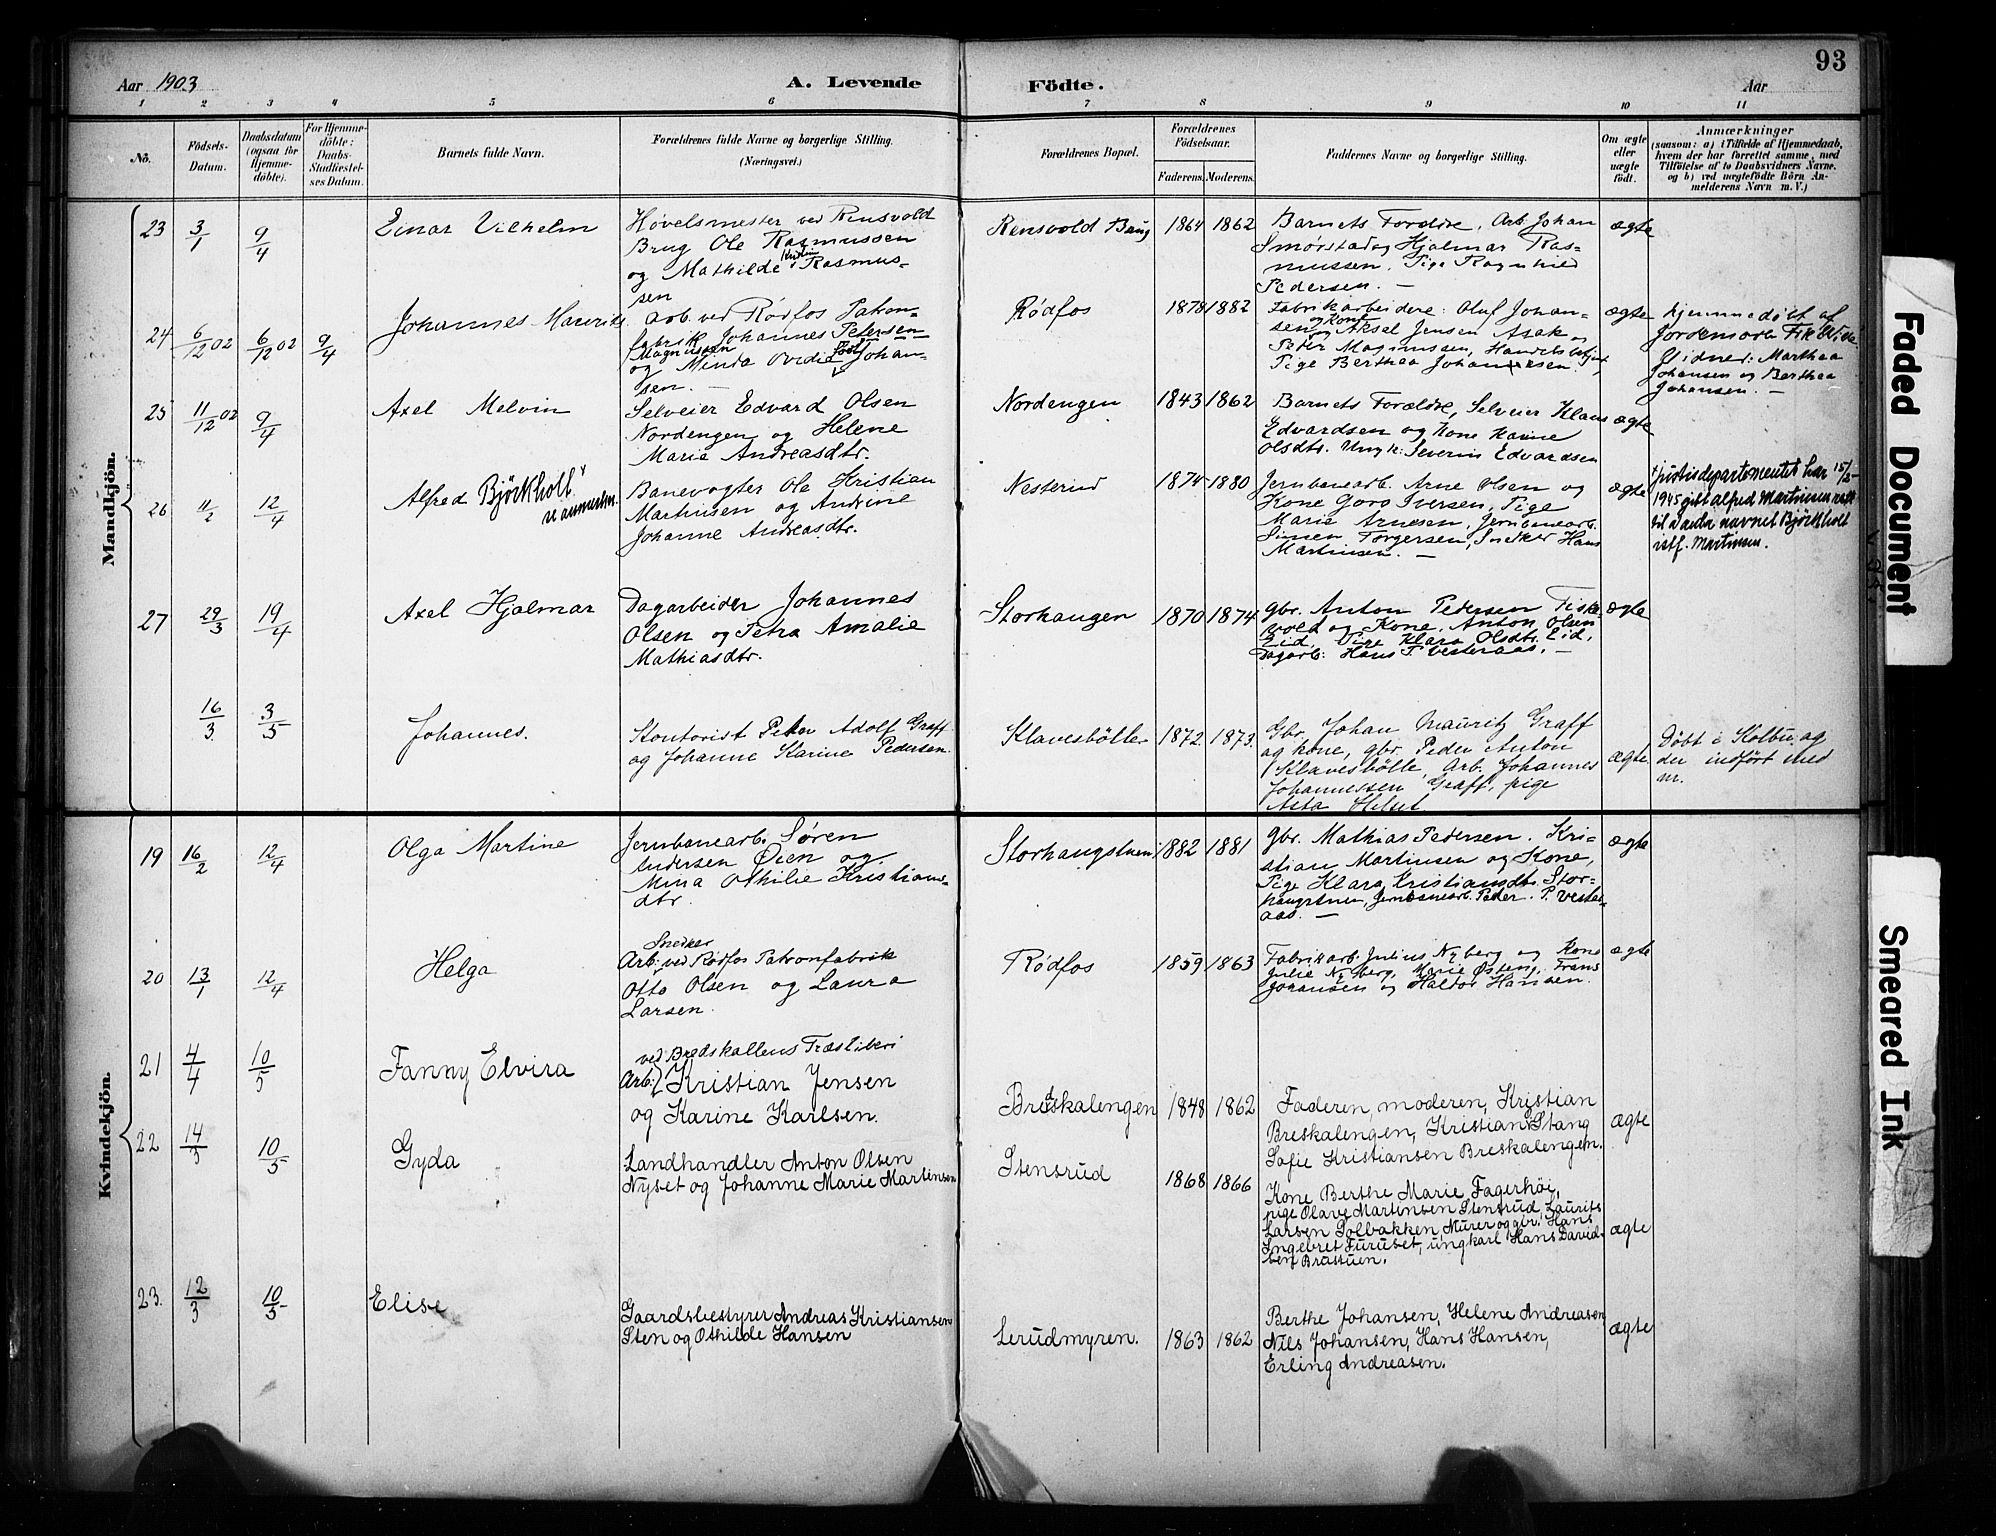 93
Aar 1903
A. Levende
Födte.
Aar
1 2 3 4 5 6 7 8 9 10 11
No.
Födsels-
Datum.
Daabsdatum
(ogsaa for
Hjemme-
döbte).
For Hjemme-
döbte:
Daabs-
Stadfæstel-
ses Datum.
Barnets fulde Navn.
Forældrenes fulde Navne og borgerlige Stilling.
(Næringsvei.)
Forældrenes Bopæl.
Forældrenes
Födselsaar.
Faderens. Moderens.
Faddernes Navne og borgerlige Stilling.
Om ægte
eller
uægte
födt.
Anmærkninger
(saasom: a) i Tilfælde af Hjemmedaab,
hvem der har forrettet samme, med
Tilföielse af to Daabsvidners Navne,
og b) ved uægtefödte Börn An-
melderens Navn m. V.)
Mandkjön.
23 3/1 9/4 Einar Vilhelm
Høvelsmester ved Rensvold
Brug Ole Rasmussen
og Mathilde Rasmus-
sen
Rensvold Brug 1864 1862
Barnets Forældre, Arb. Johan
Smørstad og Hjalmar Ras-
mussen. Pige Ragnhild
Pedersen. —
ægte
24 6/12 02 6/12 02 9/4 Johannes Mauritz
Arb. ved Rødfos Patron-
fabrik Johannes Petersen
Magnussen
og Minda Ovidie Johan-
sen. —
Rødfos 1878 1882
Fabrikarbeidere: Oluf Johan-
sen og Kone Aksel Jensen Asak
Peter Magnussen, Handelsbetjent
Pige Berthea Johansen.
ægte
hjemmedöbt af
Jordemoder
Vidner: Marthea
Johansen og Berthea
Johansen. —
25 11/12 02 9/4 Axel Melvin
Selveier Edvard Olsen
Nordengen og Helene
Marie Andreasdtr.
Nordengen 1843 1862
Barnets Forældre, Selveier Klaus
Edvardsen og Kone Karine
Olsdtr. Ungk: Severin Edvardsen
ægte
26 11/2 12/4 Alfred Björkholt
se anmerkn.
Banevogter Ole Kristian
Martinsen og Andrine
Johanne Andreasdtr.
Nesterud 1874 1880
Jernbanearb. Arne Olsen og
Kone Goro Iversen, Pige
Marie Arnesen, Jernbanearb.
Simen Torgersen, Snedker Hans
Martinsen. —
ægte
Justisdepartementet har 15/2-
1945 gitt alfred Martinsen rett
til å anta navnet Björkholt
istf. Martinsen.
27 29/3 19/4 Axel Hjalmar
Dagarbeider Johannes
Olsen og Petra Amalie
Mathiasdtr.
Storhaugen 1870 1874
Gbr. Anton Pedersen Fiske-
vold og Kone, Anton Olsen
Eid, Pige Klara Olsdtr. Eid,
Dagarb: Hans P. Vesteraas. —
ægte
16/3 3/5 Johannes.
Kontorist Peter Adolf Graff
og Johanne Karine Pedersen.
Klavesbölle 1872 1873.
Gbr. Johan Mauritz Graff
og kone, gbr. Peder Anton
Klavesbölle, Arb. Johannes
Johannessen Graff, pige
Asta
ægte
Döbt i Kolbu, og
der indfört med
nr.
Kvindekjön.
19 16/2 12/4 Olga Martine
Jernbanearb. Søren
Andersen Øien og
Mina Othilie Kristians-
dtr.
Storhaugstuen 1882 1881
Gbr. Mathias Pedersen. Kri-
stian Martinsen og Kone,
Pige Klara Kristiansdtr. Stor-
haugstuen, Jernbanearb. Peder. P. Vester-
aas. —
ægte
20 13/1 12/4 Helga
Snedker
Arb: ved Rødfos Patronfabrik
Otto Olsen og Laura
Larsen.
Rødfos 1859 1863
Fabrikarb. Julius Nyberg og Kone
Julie Nyberg, Marie Østeng, Frans
Johansen og Haldor Hansen.
ægte
21 4/4 10/5 Fanny Elvira
ved Bredskallens Træsliberi
Arb: Kristian Jensen
og Karine Karlsen.
Breiskalengen 1848 1862
Faderen, moderen, Kristian
Breskalengen, Kristian Stang
Sofie Kristiansen Breskalengen.
ægte
22 14/3 10/5 Gyda
Landhandler Anton Olsen
Nyset og Johanne Marie Martinsen
Stensrud 1868 1866
Kone Berthe Marie Fagerhöi,
pige Olave Martinsen Stensrud, Laurits
Larsen Solbakken, Murer og gbr. Hans
Ingebret Furuset, ungkarl Hans David-
sen Brustuen.
ægte
23. 12/3 10/5 Elise
Gaardsbestyrer Andreas Kristiansen
Sten og Othilde Hansen
Lerudmyren. 1863 1862
Berthe Johansen, Helene Andreasen
Nils Johansen, Hans Hansen,
Erling Andreasen.
ægte
Faded Document
Smeared Ink